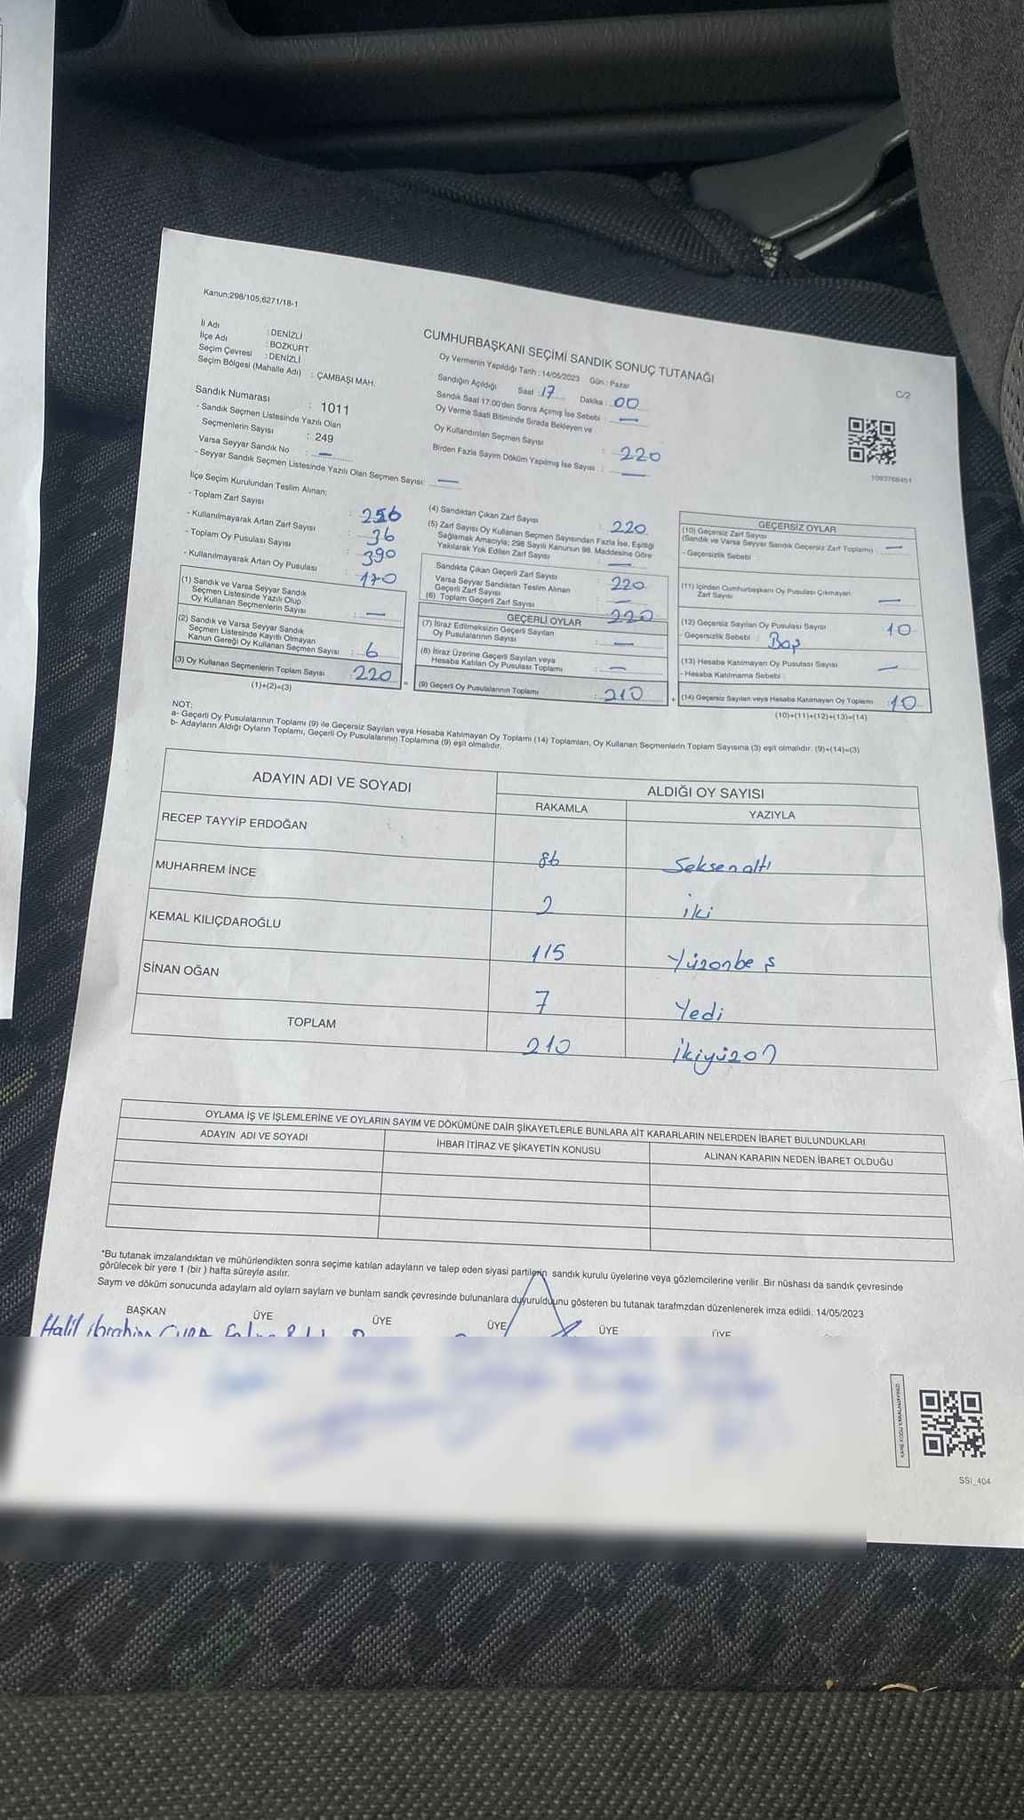 Kanun;298/105,6271/18-1
İl Adı : DENİZLİ
İlçe Adı : BOZKURT
Seçim Çevresi : DENİZLİ
Seçim Bölgesi (Mahalle Adı) : ÇAMBAŞI MAH.
Sandık Numarası : 1011
- Sandık Seçmen Listesinde Yazılı Olan
Seçmenlerin Sayısı : 249
Varsa Seyyar Sandık No : —
- Seyyar Sandık Seçmen Listesinde Yazılı Olan Seçmen Sayısı: —
CUMHURBAŞKANI SEÇİMİ SANDIK SONUÇ TUTANAĞI
Oy Vermenin Yapıldığı Tarih : 14/05/2023 Gün : Pazar
Sandığın Açıldığı Saat : 17 Dakika : 00
Sandık Saat 17.00'den Sonra Açılmış İse Sebebi : —
Oy Verme Saati Bitiminde Sırada Bekleyen ve
Oy Kullandırılan Seçmen Sayısı : 220
Birden Fazla Sayım Döküm Yapılmış İse Sayısı : —
C/2
İlçe Seçim Kurulundan Teslim Alınan;
- Toplam Zarf Sayısı : 256
- Kullanılmayarak Artan Zarf Sayısı : 36
- Toplam Oy Pusulası Sayısı : 390
- Kullanılmayarak Artan Oy Pusulası : 170
(1) Sandık ve Varsa Seyyar Sandık
Seçmen Listesinde Yazılı Olup
Oy Kullanan Seçmenlerin Sayısı : —
(2) Sandık ve Varsa Seyyar Sandık
Seçmen Listesinde Kayıtlı Olmayan
Kanun Gereği Oy Kullanan Seçmen Sayısı : 6
(3) Oy Kullanan Seçmenlerin Toplam Sayısı : 220
(1)+(2)=(3)
(4) Sandıktan Çıkan Zarf Sayısı : 220
(5) Zarf Sayısı Oy Kullanan Seçmen Sayısından Fazla İse, Eşitliği
Sağlamak Amacıyla; 298 Sayılı Kanunun 98. Maddesine Göre
Yakılarak Yok Edilen Zarf Sayısı : —
Sandıkta Çıkan Geçerli Zarf Sayısı : 220
Varsa Seyyar Sandıktan Teslim Alınan
Geçerli Zarf Sayısı
(6) Toplam Geçerli Zarf Sayısı : 220
GEÇERLİ OYLAR
(7) İtiraz Edilmeksizin Geçerli Sayılan
Oy Pusulalarının Sayısı : —
(8) İtiraz Üzerine Geçerli Sayılan veya
Hesaba Katılan Oy Pusulası Toplamı : —
(9) Geçerli Oy Pusulalarının Toplamı : 210
GEÇERSİZ OYLAR
(10) Geçersiz Zarf Sayısı
(Sandık ve Varsa Seyyar Sandık Geçersiz Zarf Toplamı) : —
- Geçersizlik Sebebi :
(11) İçinden Cumhurbaşkanı Oy Pusulası Çıkmayan
Zarf Sayısı : —
(12) Geçersiz Sayılan Oy Pusulası Sayısı : 10
- Geçersizlik Sebebi : Boş
(13) Hesaba Katılmayan Oy Pusulası Sayısı : —
- Hesaba Katılmama Sebebi :
(14) Geçersiz Sayılan veya Hesaba Katılmayan Oy Toplamı : 10
(10)+(11)+(12)+(13)=(14)
NOT:
a- Geçerli Oy Pusulalarının Toplamı (9) ile Geçersiz Sayılan veya Hesaba Katılmayan Oy Toplamı (14) Toplamları, Oy Kullanan Seçmenlerin Toplam Sayısına (3) eşit olmalıdır. (9)+(14)=(3)
b- Adayların Aldığı Oyların Toplamı, Geçerli Oy Pusulalarının Toplamına (9) eşit olmalıdır.
ADAYIN ADI VE SOYADI ALDIĞI OY SAYISI
RAKAMLA YAZIYLA
RECEP TAYYİP ERDOĞAN 86 Seksenaltı
MUHARREM İNCE 2 iki
KEMAL KILIÇDAROĞLU 115 Yüzonbeş
SİNAN OĞAN 7 Yedi
TOPLAM 210 ikiyüzon
OYLAMA İŞ VE İŞLEMLERİNE VE OYLARIN SAYIM VE DÖKÜMÜNE DAİR ŞİKAYETLERLE BUNLARA AİT KARARLARIN NELERDEN İBARET BULUNDUKLARI
ADAYIN ADI VE SOYADI İHBAR İTİRAZ VE ŞİKAYETİN KONUSU ALINAN KARARIN NEDEN İBARET OLDUĞU
*Bu tutanak imzalandıktan ve mühürlendikten sonra seçime katılan adayların ve talep eden siyasi partilerin sandık kurulu üyelerine veya gözlemcilerine verilir. Bir nüshası da sandık çevresinde
görülecek bir yere 1 (bir ) hafta süreyle asılır.
Saym ve döküm sonucunda adaylarn ald oylarn saylarn ve bunlarn sandk çevresinde bulunanlara duyurulduunu gösteren bu tutanak tarafmzdan düzenlenerek imza edildi. 14/05/2023
BAŞKAN ÜYE ÜYE ÜYE ÜYE ÜYE
Halil ibrahim
SSI_404